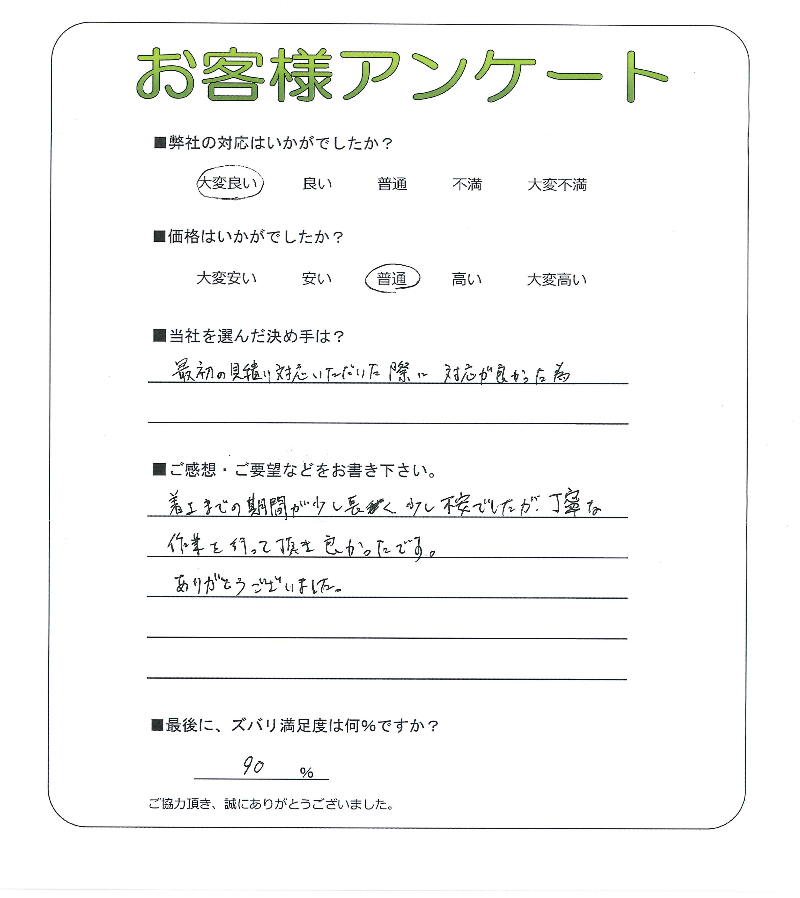 お客様アンケート
■弊社の対応はいかがでしたか？
大変良い 良い 普通 不満 大変不満
■価格はいかがでしたか？
大変安い 安い 普通 高い 大変高い
■当社を選んだ決め手は？
最初の見積り対応いただいた際に 対応が良かった為
■ご感想・ご要望などをお書き下さい。
着工までの期間が少し長く 少し不安でしたが、丁寧な
作業を行って頂き良かったです。
ありがとうございました。
■最後に、ズバリ満足度は何％ですか？
90 ％
ご協力頂き、誠にありがとうございました。